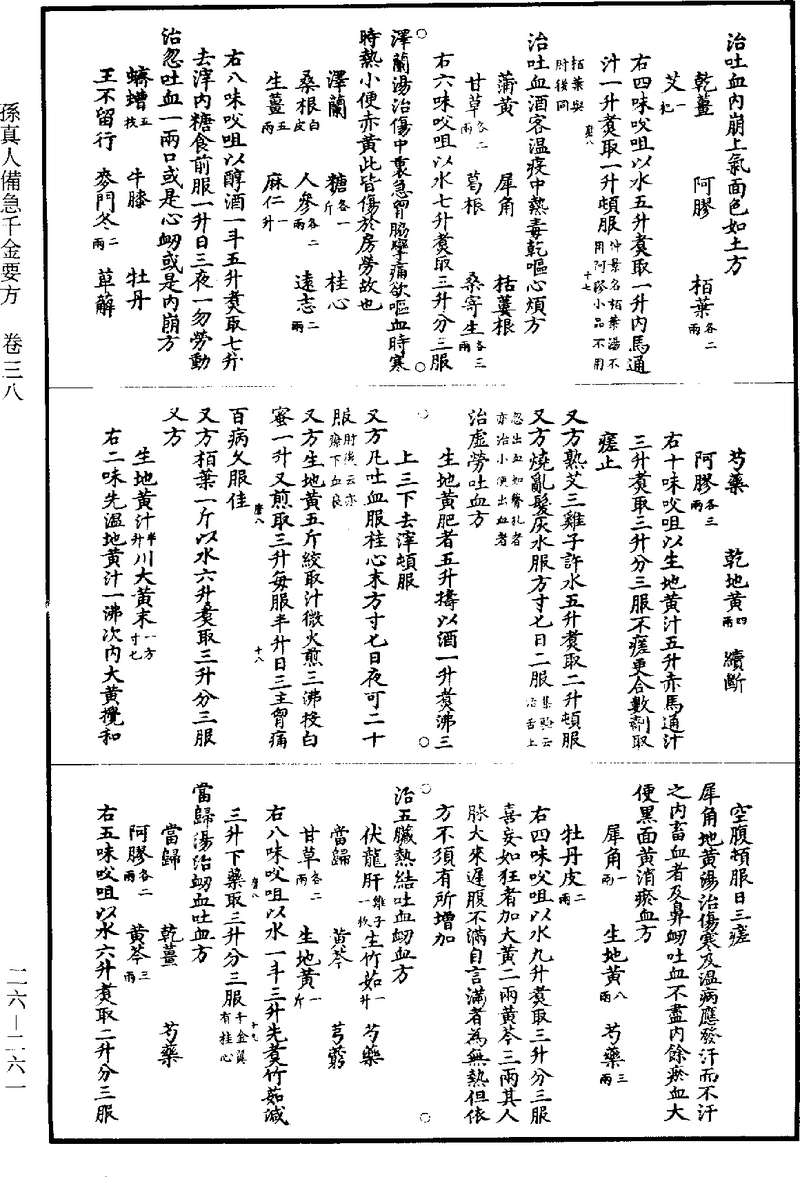 孫真人備急千金要方　卷三八
二六—二六一
治吐血內崩上氣面色如土方
乾薑　阿膠　栢葉各二兩
艾一把
右四味㕮咀以水五升煮取一升內馬通
汁一升煮取一升頓服仲景名栢葉湯不用阿膠小品不用
栢葉與肘後同
治吐血酒客溫疫中熱毒乾嘔心煩方
蒲黃　犀角　栝蔞根
甘草各二兩　葛根　桑寄生各三兩
右六味㕮咀以水七升煮取三升分三服
澤蘭湯治傷中裏急胷脇攣痛欲嘔血時寒
時熱小便赤黃此皆傷於房勞故也
澤蘭　糖各一斤　桂心
桑根白皮　人參各二兩　遠志二兩
生薑五兩　麻仁一升
右八味㕮咀以醇酒一斗五升煮取七升
去滓內糖食前服一升日三夜一勿勞動
治忽吐血一兩口或是心衂或是內崩方
蠐螬五枚　牛膝　牡丹
王不留行　麥門冬二兩　萆薢
芍藥　乾地黃四兩　續斷
阿膠各三兩
右十味㕮咀以生地黃汁五升赤馬通汁
三升煮取三升分三服不瘥更合數劑取
瘥止
又方熟艾三雞子許水五升煮取二升頓服
又方燒亂髮灰水服方寸匕日二服集驗云治舌上
忽出血如簪孔者亦治小便出血者
治虛勞吐血方
生地黃肥者五升擣以酒一升煮沸三
上三下去滓頓服
又方凡吐血服桂心末方寸匕日夜可二十
服肘後云亦療下血良
又方生地黃五斤絞取汁微火煎三沸投白
蜜一升又煎取三升每服半升日三主胷痛
百病久服佳
又方栢葉一斤以水六升煮取三升分三服
又方
生地黃汁半升　川大黃末一方寸匕
右二味先溫地黃汁一沸次內大黃攪和
空腹頓服日三瘥
犀角地黃湯治傷寒及溫病應發汗而不汗
之內畜血者及鼻衂吐血不盡內餘瘀血大
便黑面黃消瘀血方
犀角一兩　生地黃八兩　芍藥三兩
牡丹皮二兩
右四味㕮咀以水九升煮取三升分三服
喜妄如狂者加大黃二兩黃芩三兩其人
脉大來遲腹不滿自言滿者為無熱但依
方不須有所增加
治五臟熱結吐血衂血方
伏龍肝雞子一枚　生竹茹一升　芍藥
當歸　黃芩　芎藭
甘草各二兩　生地黃一斤
右八味㕮咀以水一斗三升先煮竹茹減
三升下藥取三升分三服千金翼有桂心
當歸湯治衂血吐血方
當歸　乾薑　芍藥
阿膠各二兩　黃芩三兩
右五味㕮咀以水六升煮取二升分三服